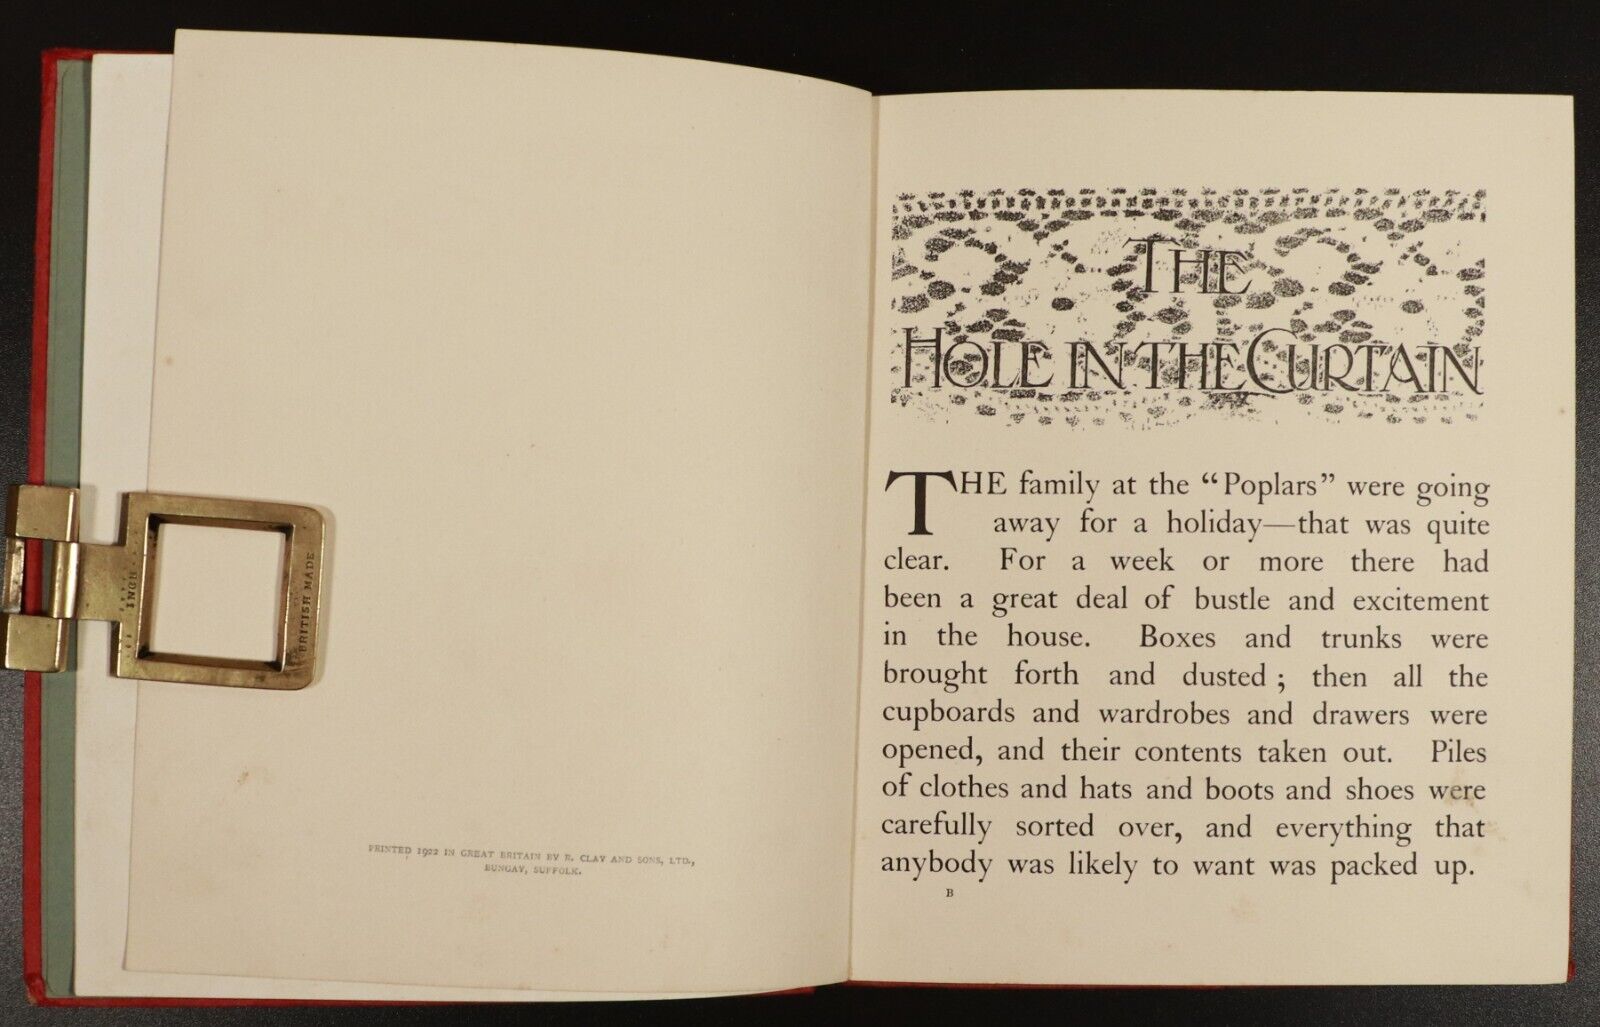 INCH
BRITISH MADE
PRINTED 1922 IN GREAT BRITAIN BY R. CLAY AND SONS, LTD.,
BUNGAY, SUFFOLK.
THE
HOLE IN THE CURTAIN
THE family at the “Poplars” were going
away for a holiday—that was quite
clear. For a week or more there had
been a great deal of bustle and excitement
in the house. Boxes and trunks were
brought forth and dusted ; then all the
cupboards and wardrobes and drawers were
opened, and their contents taken out. Piles
of clothes and hats and boots and shoes were
carefully sorted over, and everything that
anybody was likely to want was packed up.
B